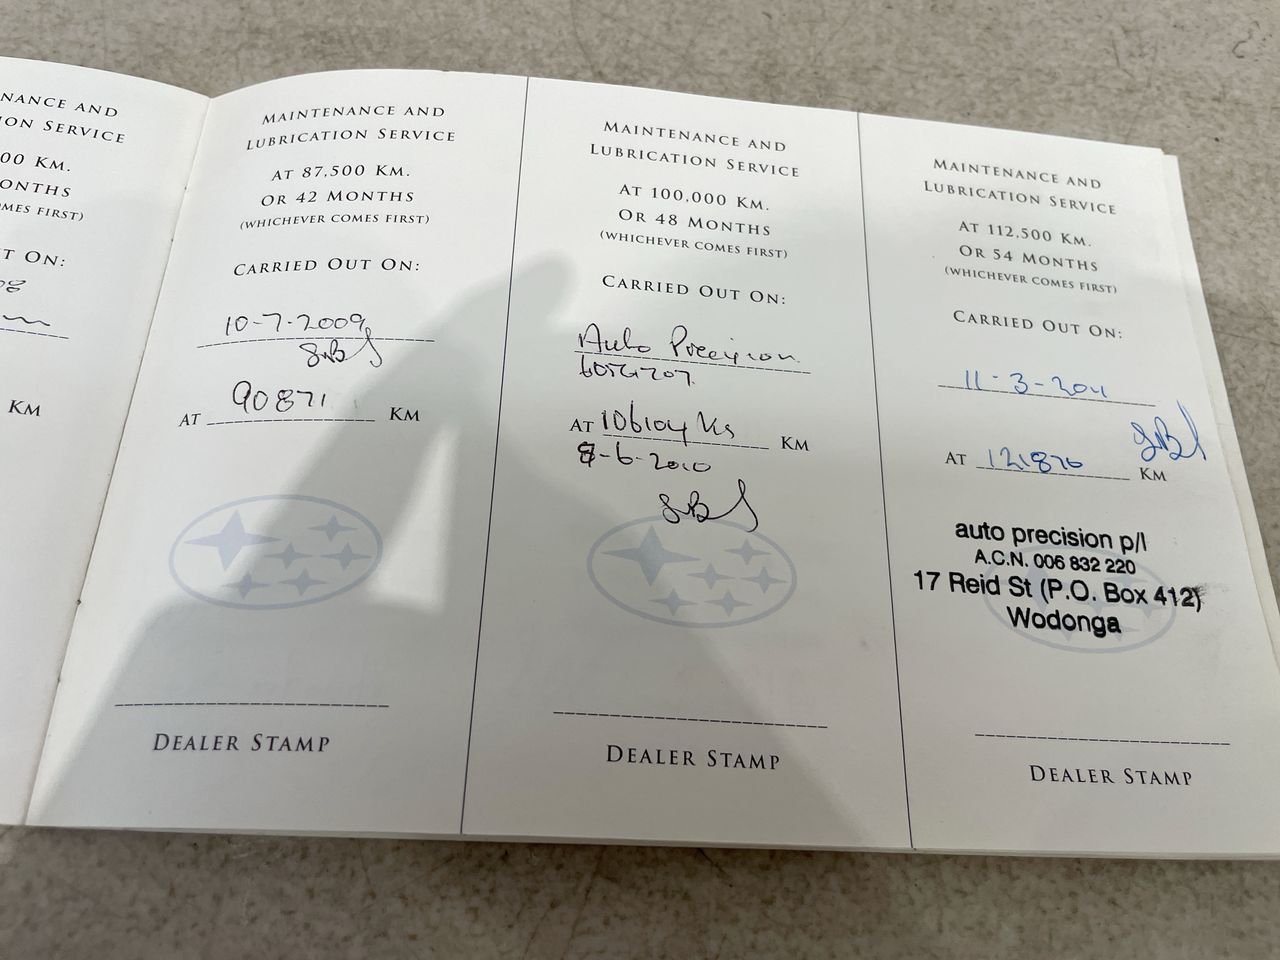 NANCE AND
ION SERVICE
00 KM.
ONTHS
MES FIRST)
T ON:
08
KM
MAINTENANCE AND
LUBRICATION SERVICE
AT 87,500 KM.
OR 42 MONTHS
(WHICHEVER COMES FIRST)
CARRIED OUT ON:
10-7-2009
AT 90871 KM
DEALER STAMP
MAINTENANCE AND
LUBRICATION SERVICE
AT 100,000 KM.
OR 48 MONTHS
(WHICHEVER COMES FIRST)
CARRIED OUT ON:
Auto Precision
AT 106104 Ks KM
8-6-2010
DEALER STAMP
MAINTENANCE AND
LUBRICATION SERVICE
AT 112,500 KM.
OR 54 MONTHS
(WHICHEVER COMES FIRST)
CARRIED OUT ON:
11-3-2011
AT 121876 KM
auto precision p/l
A.C.N. 006 832 220
17 Reid St (P.O. Box 412)
Wodonga
DEALER STAMP